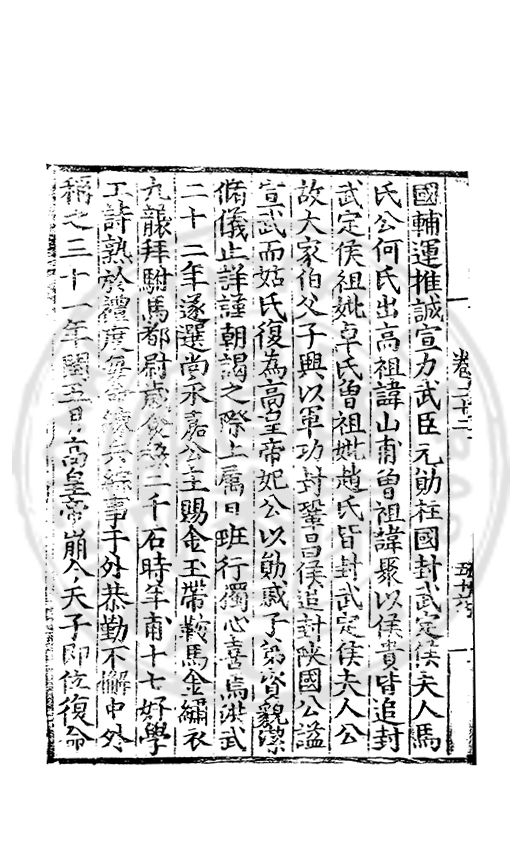 國輔運推誠宣力武臣元勛柱國封武定侯夫人馬
氏公何氏出高祖諱山甫曾祖諱聚以侯貴皆追封
武定侯祖妣卓氏曾祖妣趙氏皆封武定侯夫人公
故大家伯父子興以軍功封鞏昌侯追封陝國公謚
宣武而姑氏復為高皇帝妃公以勛戚子弟資貌潔
脩儀止詳謹朝謁之際上屬目班行獨心喜焉洪武
二十二年遂選尚永嘉公主賜金玉帶鞍馬金繡衣
九襲拜駙馬都尉歲食祿二千石時年甫十七好學
工詩熟於禮度每命練兵綜事于外恭勤不懈中外
稱之三十一年閏五月高皇帝崩今天子即位復命
卷二十二
五十六